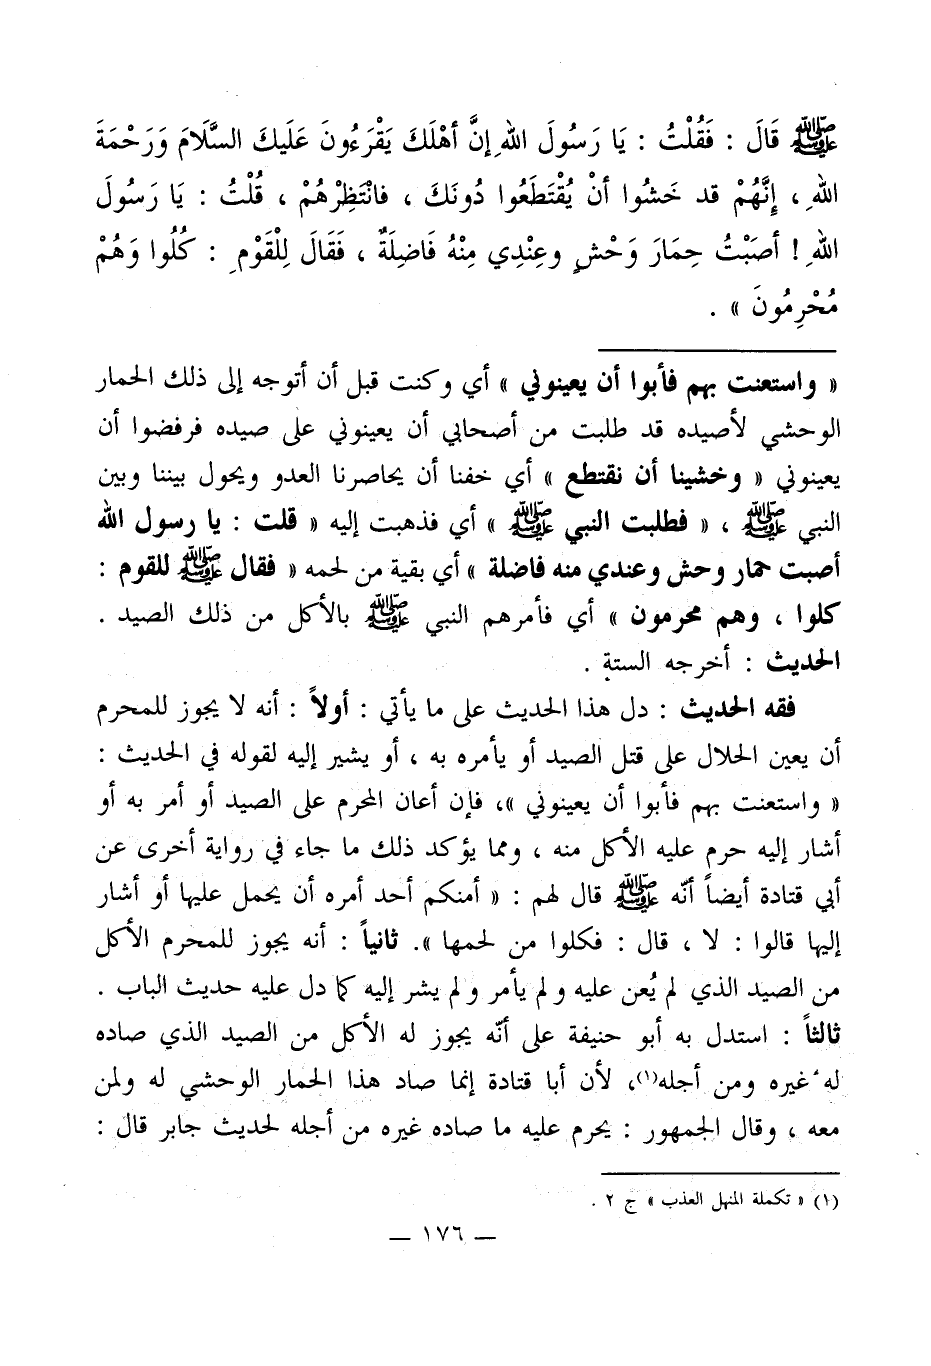 ﷺ قَالَ : فَقُلْتُ : يَا رَسُولَ اللهِ إِنَّ أَهْلَكَ يَقْرَءُونَ عَلَيكَ السَّلَامَ وَرَحْمَةَ
اللهِ ، إِنَّهُمْ قد خَشُوا أنْ يُقْتَطَعُوا دُونَكَ ، فانْتَظِرْهُمْ ، قُلْتُ : يَا رَسُولَ
اللهِ ! أصَبْتُ حِمَارَ وَحْشٍ وعِنْدِي مِنْهُ فَاضِلَةٌ ، فَقَالَ لِلْقَوْمِ : كُلُوا وَهُمْ
مُحْرِمُونَ » .
« واستعنت بهم فأبوا أن يعينوني » أي وكنت قبل أن أتوجه إلى ذلك الحمار
الوحشي لأصيده قد طلبت من أصحابي أن يعينوني على صيده فرفضوا أن
يعينوني « وخشينا أن نقتطع » أي خفنا أن يحاصرنا العدو ويحول بيننا وبين
النبي ﷺ ، « فطلبت النبي ﷺ » أي فذهبت إليه « قلت : يا رسول الله
أصبت حمار وحش وعندي منه فاضلة » أي بقية من لحمه « فقال ﷺ للقوم :
كلوا ، وهم محرمون » أي فأمرهم النبي ﷺ بالأكل من ذلك الصيد .
الحديث : أخرجه الستة .
فقه الحديث : دل هذا الحديث على ما يأتي : أولاً : أنه لا يجوز للمحرم
أن يعين الحلال على قتل الصيد أو يأمره به ، أو يشير إليه لقوله في الحديث :
« واستعنت بهم فأبوا أن يعينوني »، فإن أعان المحرم على الصيد أو أمر به أو
أشار إليه حرم عليه الأكل منه ، ومما يؤكد ذلك ما جاء في رواية أخرى عن
أبي قتادة أيضاً أنّه ﷺ قال لهم : « أمنكم أحد أمره أن يحمل عليها أو أشار
إليها قالوا : لا ، قال : فكلوا من لحمها ». ثانياً : أنه يجوز للمحرم الأكل
من الصيد الذي لم يُعن عليه ولم يأمر ولم يشر إليه كما دل عليه حديث الباب .
ثالثاً : استدل به أبو حنيفة على أنّه يجوز له الأكل من الصيد الذي صاده
له غيره ومن أجله(١)، لأن أبا قتادة إنما صاد هذا الحمار الوحشي له ولمن
معه ، وقال الجمهور : يحرم عليه ما صاده غيره من أجله لحديث جابر قال :
(١) « تكملة المنهل العذب » ج ٢ .
— ١٧٦ —